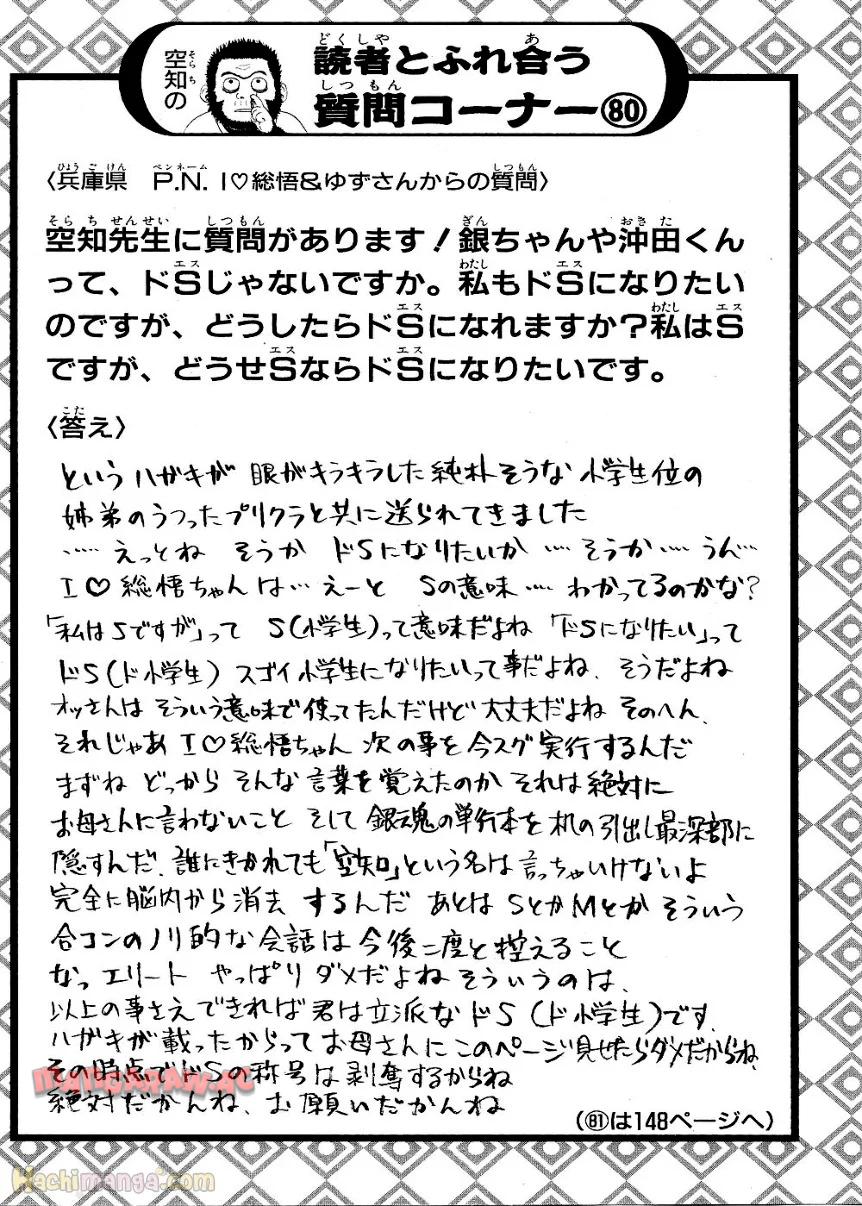 空知の
読者とふれ合う
質問コーナー80
〈兵庫県 P.N. I♡総悟&ゆずさんからの質問〉
空知先生に質問があります!銀ちゃんや沖田くん
って、ドSじゃないですか。私もドSになりたい
のですが、どうしたらドSになれますか?私はS
ですが、どうせSならドSになりたいです。
〈答え〉
というハガキが 眼がキラキラした純朴そうな小学生位の
姉弟のうつったプリクラと共に送られてきました
……えっとね そうか ドSになりたいか …そうか…うん…
I♡総悟ちゃんは…えーと Sの意味…わかってるのかな?
「私はSですが」って S(小学生)って意味だよね「ドSになりたい」って
ドS(ド小学生) スゴイ小学生になりたいって事だよね、そうだよね
オッさんはそういう意味で使ってたんだけど大丈夫だよねそのへん、
それじゃあI♡総悟ちゃん 次の事を今スグ実行するんだ
まずね どっから そんな言葉を覚えたのか それは絶対に
お母さんに言わないこと そして 銀魂の単行本を机の引出し最深部に
隠すんだ、誰にきかれても「空知」という名は言っちゃいけないよ
完全に脳内から消去 するんだ あとは SとかMとか そういう
合コンのノリ的な会話は今後二度と控えること
なっエリート やっぱりダメだよねそういうのは、
以上の事さえできれば君は立派なドS(ド小学生)です、
ハガキが載ったからってお母さんにこのページ見せたらダメだからね、
その時点でドSの称号は剥奪するからね
絶対だかんね、お願いだかんね
(81は148ページへ)
MANGARAW.AC
Hachimanga.com